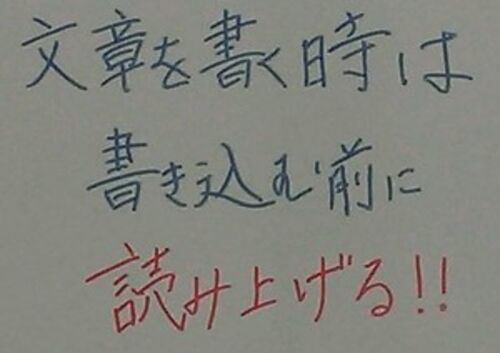 文章を書く時は
書き込む前に
読み上げる!!